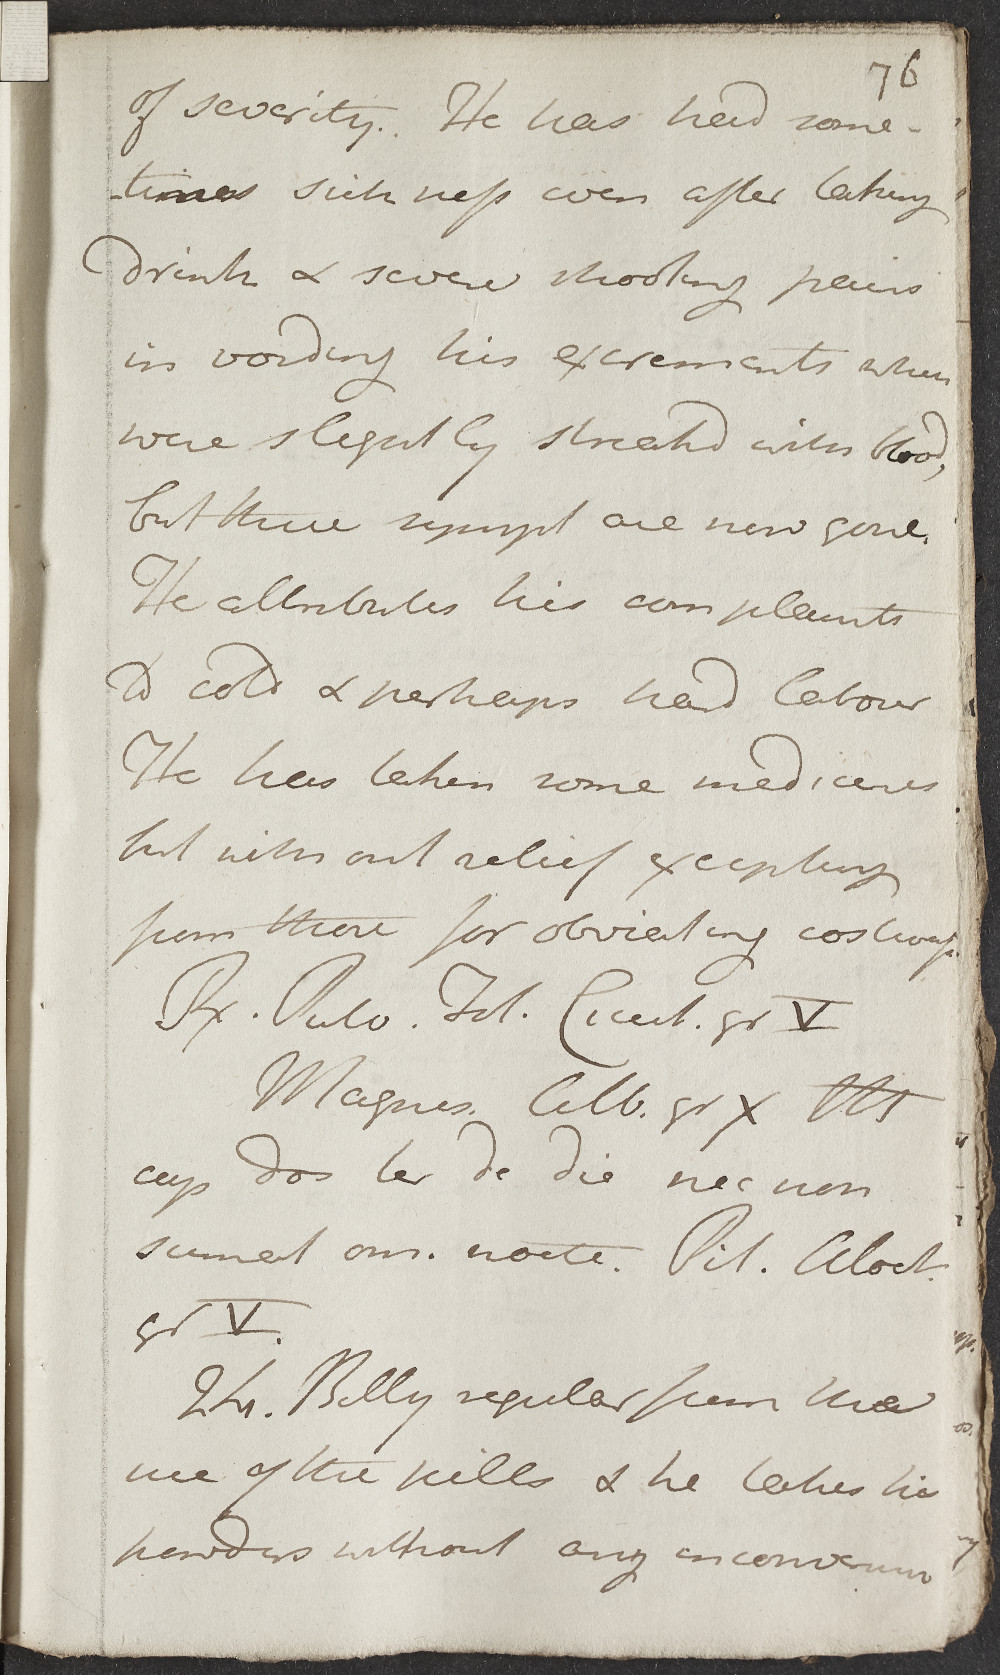 76
of severity. He has had some-
-times sickness even after taking
drink & severe shooting pains
in voiding his excrements when
were slightly streaked with blood,
but these sympt are now gone.
He attributes his complaints
to cold & perhaps hard labour
He has taken some medicines
but without relief excepting
from those for obviating costiveness.
Rx. Pulv. Fol. Cicut. gr V
Magnes. Alb. gr X Mt
cap dos ter de die nec non
sumat om. nocte. Pil. Aloet.
gr V.
24. Belly regular from the
use of the pills & he takes his
powders without any inconvenience